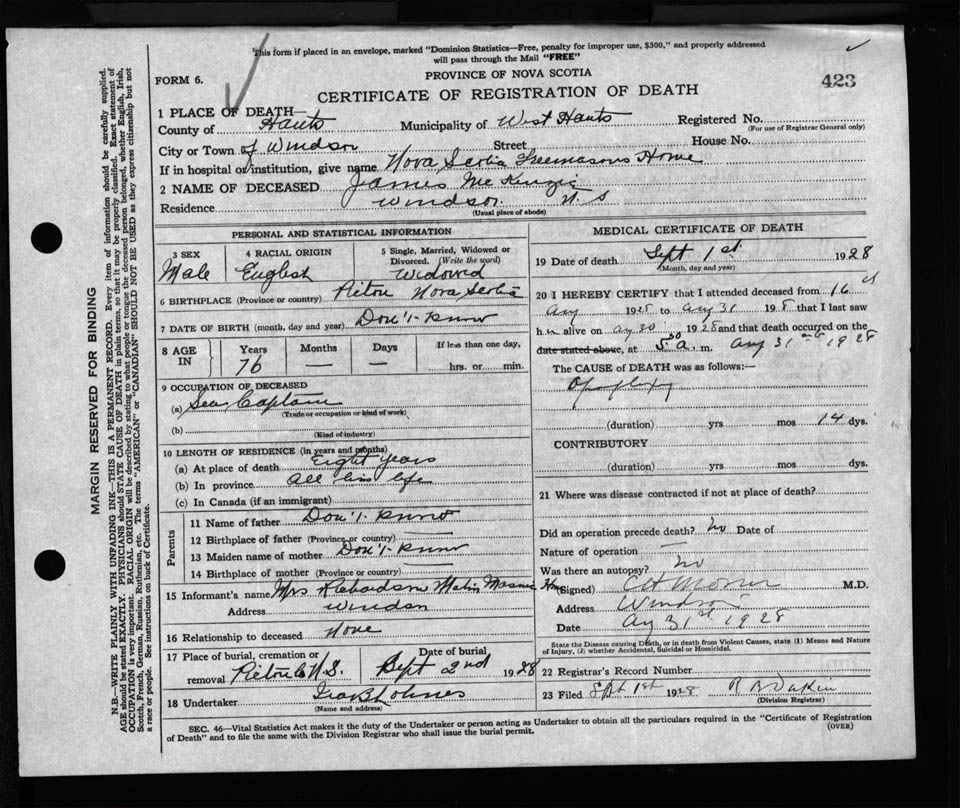 This form if placed in an envelope, marked "Dominion Statistics—Free, penalty for improper use, $300," and properly addressed
will pass through the Mail "FREE"
FORM 6.
PROVINCE OF NOVA SCOTIA
423
CERTIFICATE OF REGISTRATION OF DEATH
1 PLACE OF DEATH—
County of Hants Municipality of West Hants Registered No.
(For use of Registrar General only)
City or Town of Windsor Street House No.
If in hospital or institution, give name Nova Scotia Freemasons Home
2 NAME OF DECEASED James McKenzie
Residence Windsor. N. S
(Usual place of abode)
PERSONAL AND STATISTICAL INFORMATION
3 SEX
Male
4 RACIAL ORIGIN
English
5 Single, Married, Widowed or
Divorced. (Write the word)
Widowed
6 BIRTHPLACE (Province or country) Pictou Nova Scotia
7 DATE OF BIRTH (month, day and year) Don't-Know
8 AGE IN
Years Months Days If less than one day,
76 — — hrs. or min.
9 OCCUPATION OF DECEASED
(a) Sea Captain
(Trade or occupation or kind of work)
(b)
(Kind of industry)
10 LENGTH OF RESIDENCE (in years and months)
(a) At place of death Eight years
(b) In province all his life
(c) In Canada (if an immigrant)
Parents
11 Name of father Don't-Know
12 Birthplace of father (Province or country) —
13 Maiden name of mother Don't-Know
14 Birthplace of mother (Province or country) —
15 Informant's name Mrs Richardson Matin Masonic Home
Address Windsor
16 Relationship to deceased None
17 Place of burial, cremation or removal Pictou N.S.
Date of burial Sept 2nd 1928
18 Undertaker
(Name and address)
MEDICAL CERTIFICATE OF DEATH
19 Date of death Sept 1st 1928
(Month, day and year)
20 I HEREBY CERTIFY that I attended deceased from 16
Aug 1928 to Aug 31 1928 that I last saw
h im alive on Aug 30 1928 and that death occurred on the
date stated above, at 5.30 a. m. Aug 31st 1928
The CAUSE of DEATH was as follows:—
Apoplexy
(duration) yrs mos 14 dys.
CONTRIBUTORY
(duration) yrs mos dys.
21 Where was disease contracted if not at place of death?
Did an operation precede death? No Date of
Nature of operation —
Was there an autopsy? No
(Signed) M.D.
Address Windsor
Date Aug 31st 1928
State the Disease causing Death, or in death from Violent Causes, state (1) Means and Nature
of Injury, (2) whether Accidental, Suicidal or Homicidal.
22 Registrar's Record Number
23 Filed Sept 1st 1928 R B Dakin
(Division Registrar)
SEC. 46—Vital Statistics Act makes it the duty of the Undertaker or person acting as Undertaker to obtain all the particulars required in the "Certificate of Registration
of Death" and to file the same with the Division Registrar who shall issue the burial permit.
(OVER)
MARGIN RESERVED FOR BINDING
N.B.—WRITE PLAINLY WITH UNFADING INK—THIS IS A PERMANENT RECORD. Every item of information should be carefully supplied.
AGE should be stated EXACTLY. PHYSICIANS should STATE CAUSE OF DEATH in plain terms, so that it may be properly classified. Exact statement of
OCCUPATION is very important. RACIAL ORIGIN will be described by stating to what people or tongue the deceased person belonged, whether English, Irish,
Scotch, French, German, Russian, Ruthenian, etc. The terms "AMERICAN" or "CANADIAN" SHOULD NOT BE USED as they express citizenship but not
a race or people. See instructions on back of Certificate.